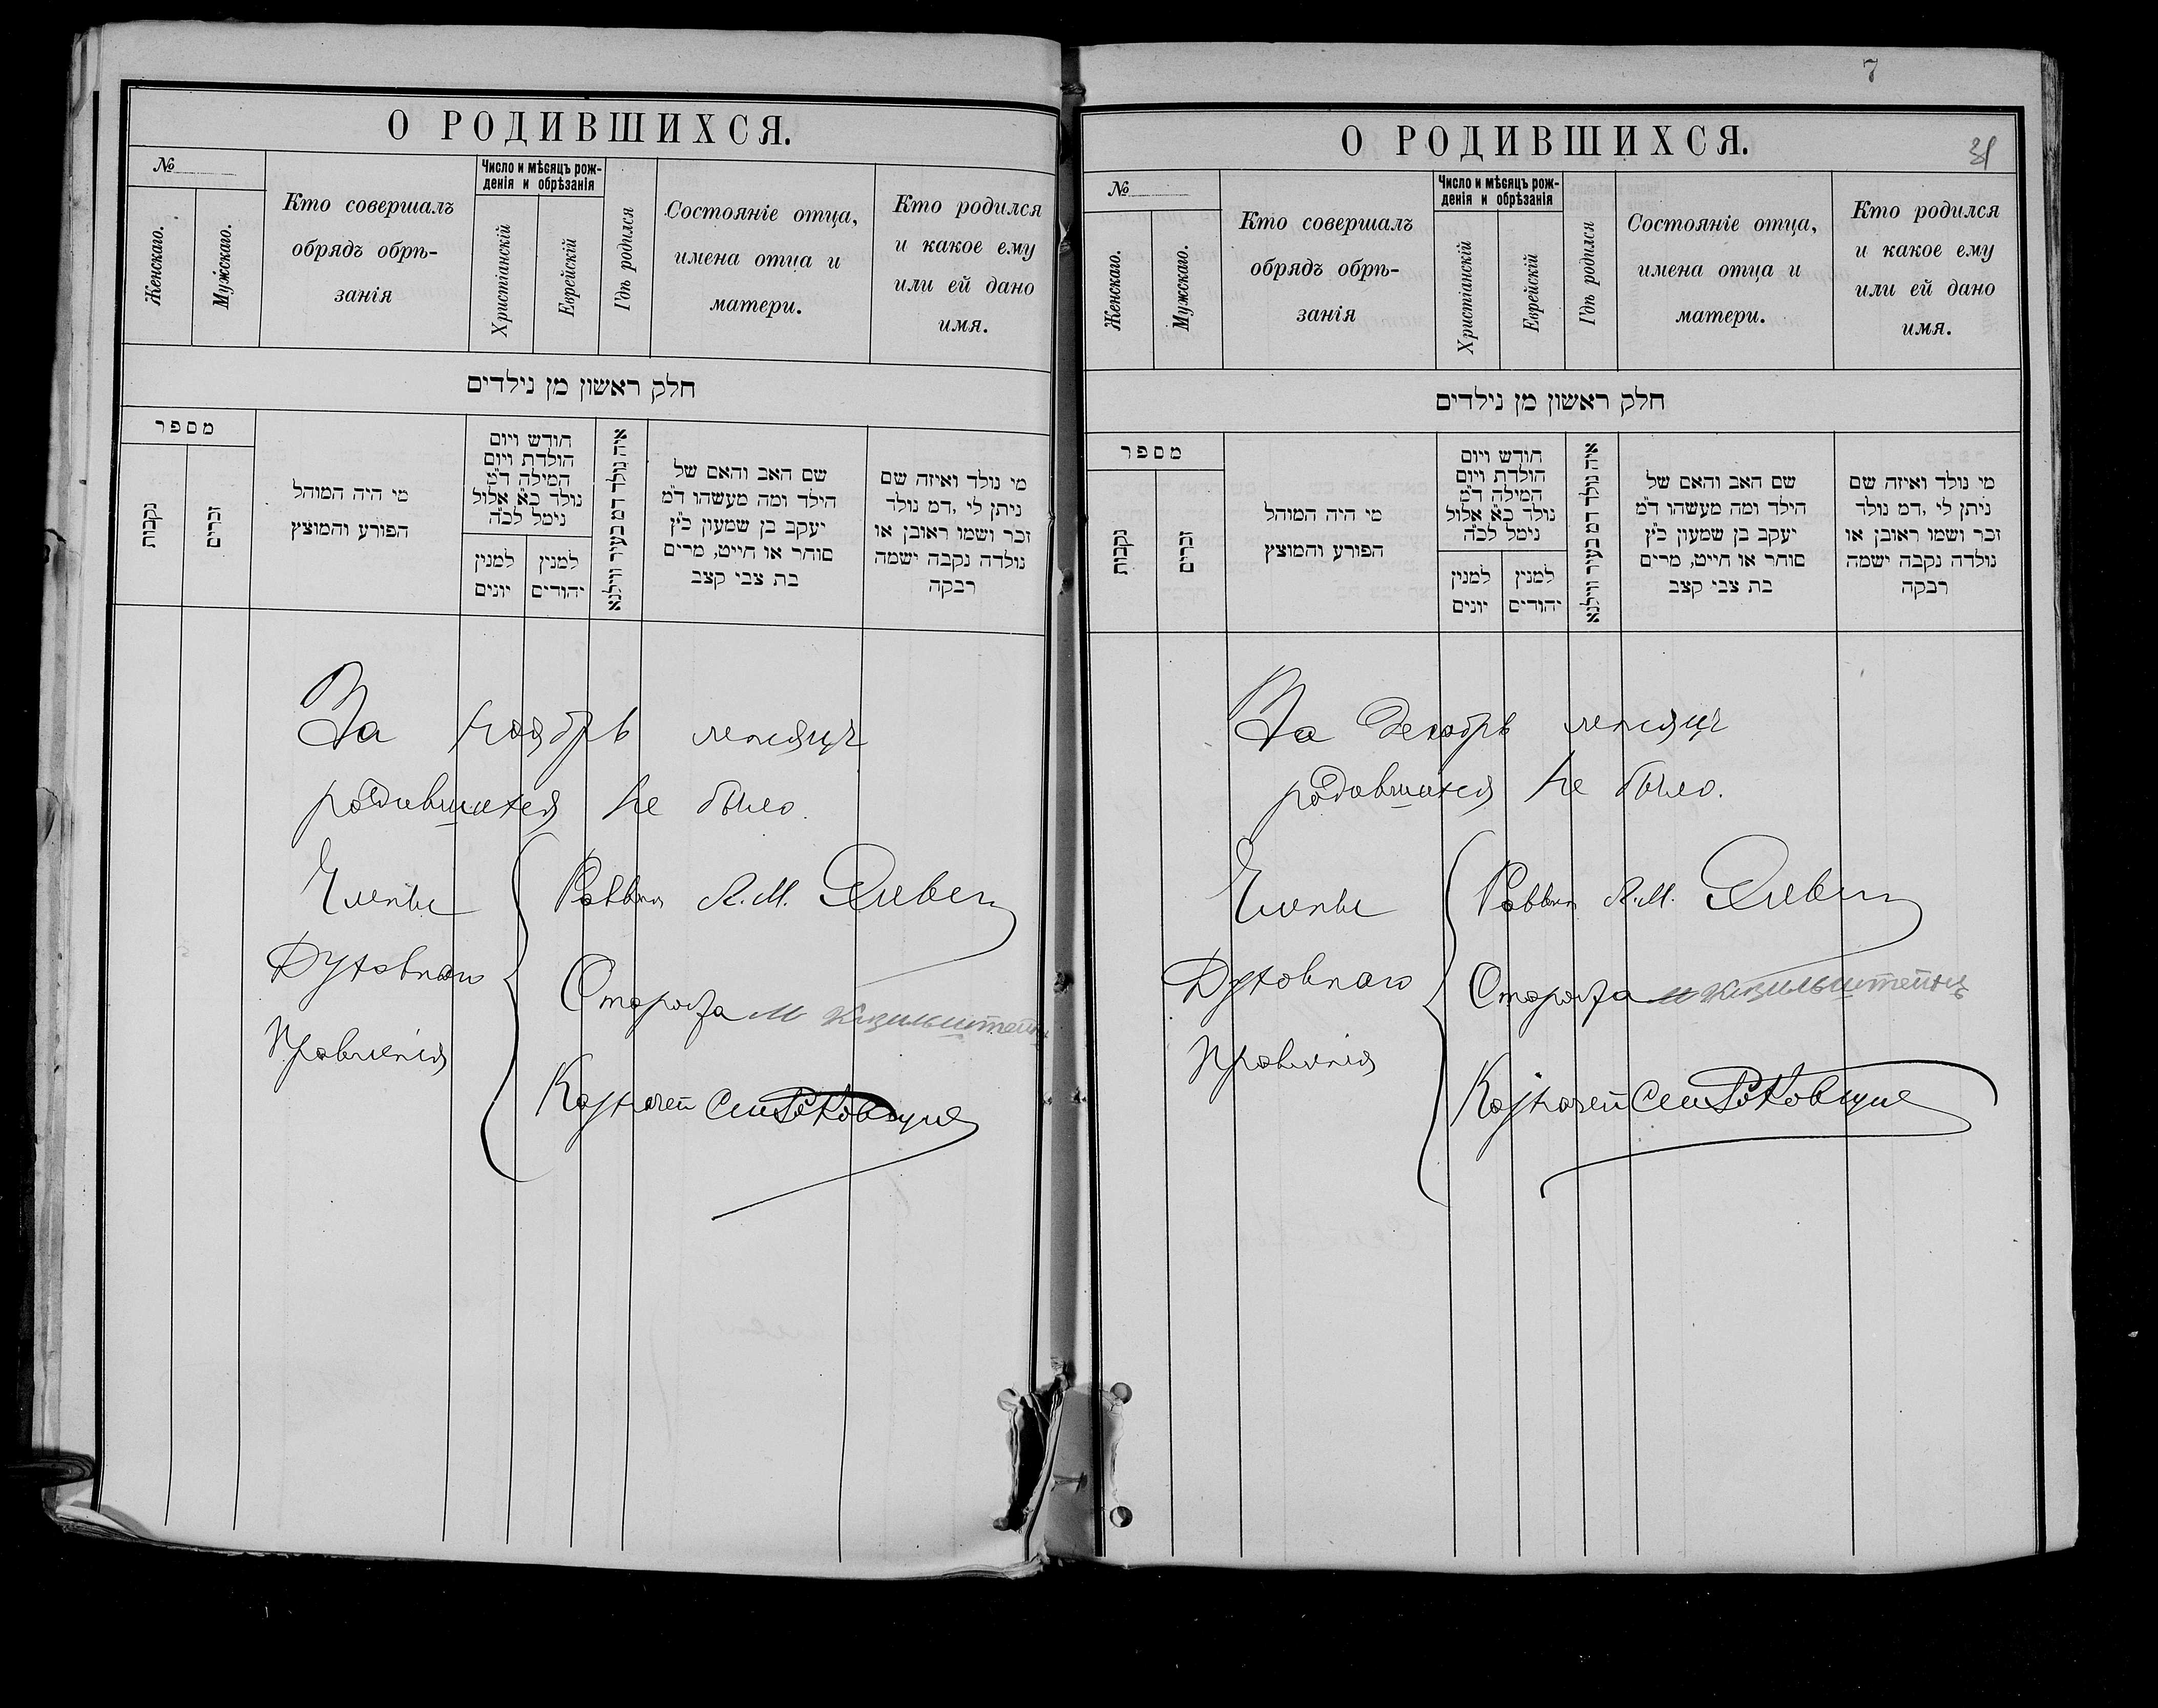 О РОДИВШИХСЯ.
№
Женскаго.
Мужскаго.
Кто совершалъ
обрядъ обрѣ-
занія
Число и мѣсяцъ рож-
денія и обрѣзанія
Христіанскій
Еврейскій
Гдѣ родился
Состояніе отца,
имена отца и
матери.
Кто родился
и какое ему
или ей дано
имя.
חלק ראשון מן נילדים
מספר
נקבות
זכרים
מי היה המוהל
הפורע והמוצץ
חודש ויום
הולדת ויום
המילה ד״מ
נולד כ״א אלול
נימל לכ״ה
למנין
יונים
למנין
יהודים
איה נולד דמ בעיר ווילנא
שם האב והאם של
הילד ומה מעשהו ד״מ
יעקב בן שמעון כ״ץ
סוחר או חייט, מרים
בת צבי קצב
מי נולד ואיזה שם
ניתן לי ,דמ נולד
זכר ושמו ראובן או
נולדה נקבה ישמה
רבקה
За ноябрь месяцъ
родившихся не было.
Члены
Духовнаго
Правленія
Раввин А.М.
Староста М Кизильштейнъ
Казначей
7
О РОДИВШИХСЯ.
31
№
Женскаго.
Мужскаго.
Кто совершалъ
обрядъ обрѣ-
занія
Число и мѣсяцъ рож-
денія и обрѣзанія
Христіанскій
Еврейскій
Гдѣ родился
Состояніе отца,
имена отца и
матери.
Кто родился
и какое ему
или ей дано
имя.
חלק ראשון מן נילדים
מספר
נקבות
זכרים
מי היה המוהל
הפורע והמוצץ
חודש ויום
הולדת ויום
המילה ד״מ
נולד כ״א אלול
נימל לכ״ה
למנין
יונים
למנין
יהודים
איה נולד דמ בעיר ווילנא
שם האב והאם של
הילד ומה מעשהו ד״מ
יעקב בן שמעון כ״ץ
סוחר או חייט, מרים
בת צבי קצב
מי נולד ואיזה שם
ניתן לי ,דמ נולד
זכר ושמו ראובן או
נולדה נקבה ישמה
רבקה
За декабрь месяцъ
родившихся не было.
Члены
Духовнаго
Правленія
Раввин А.М.
Староста М Кизильштейнъ
Казначей